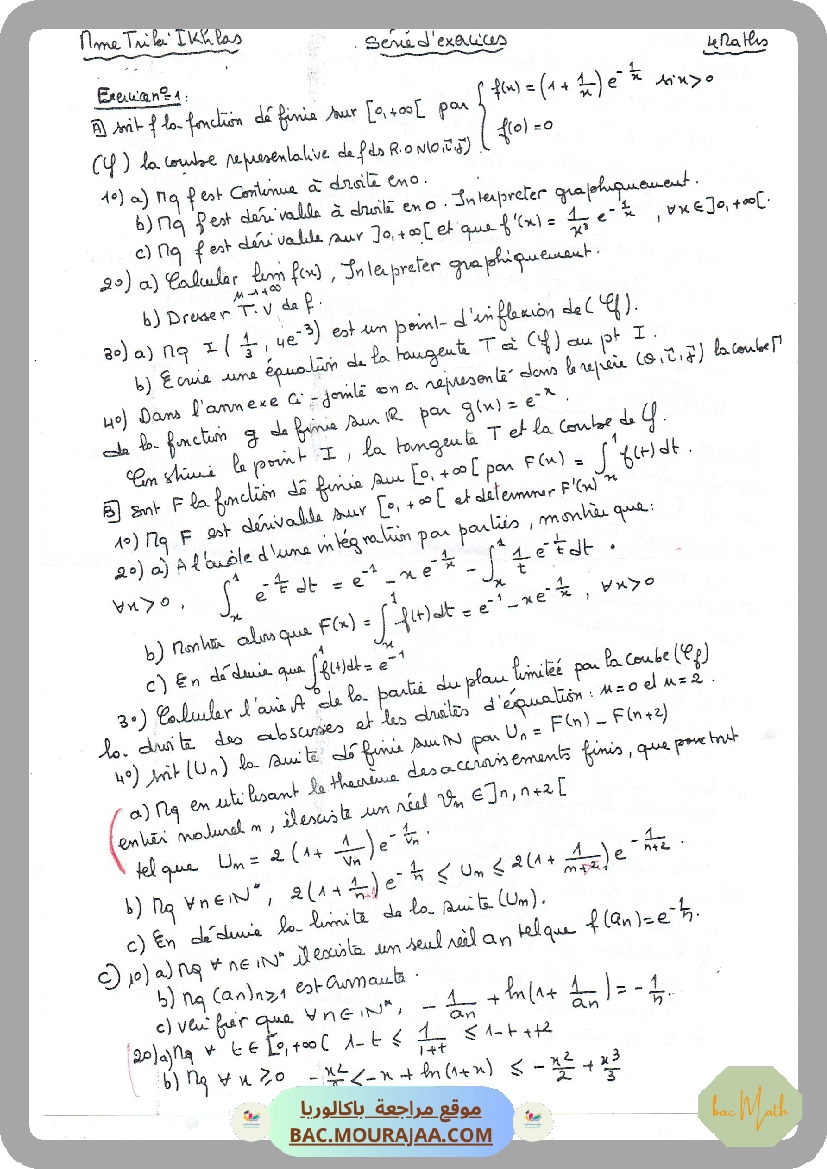 Mme Triki IKhlas Série d'exercices 4Maths
Exercice n°=1:
A) soit f la fonction définie sur [0,+∞[ par { f(x) = (1 + 1/x) e^{-1/x} si x>0
f(0) = 0
(𝒞f) la courbe représentative de f ds R.O.N(O,i⃗,j⃗)
1°) a) Mq f est Continue à droite en 0.
b) Mq f est dérivable à droite en 0. Interpreter graphiquement.
c) Mq f est dérivable sur ]0,+∞[ et que f'(x) = 1/x³ e^{-1/x}, ∀x∈]0,+∞[.
2°) a) Calculer lim f(x), Interpreter graphiquement.
x→+∞
b) Dresser T.V de f.
3°) a) Mq I(1/3, 4e^{-3}) est un point d'inflexion de (𝒞f).
b) Ecrire une équation de la tangente T à (𝒞f) au pt I.
4°) Dans l'annexe ci-jointe on a représenté dans le repère (O,i⃗,j⃗) la courbe Γ
de la fonction g définie sur ℝ par g(x) = e^{-x}.
Construire le point I, la tangente T et la courbe de f.
B) soit F la fonction définie sur [0,+∞[ par F(x) = ∫_x^1 f(t) dt.
1°) Mq F est dérivable sur [0,+∞[ et déterminer F'(x)
2°) a) A l'aide d'une intégration par parties, montrer que:
∀x>0, ∫_x^1 e^{-1/t} dt = e^{-1} - x e^{-1/x} - ∫_x^1 1/t e^{-1/t} dt.
b) Montrer alors que F(x) = ∫_x^1 f(t) dt = e^{-1} - x e^{-1/x}, ∀x>0
c) En déduire que ∫_0^1 f(t) dt = e^{-1}
3°) Calculer l'aire A de la partie du plan limitée par la courbe (𝒞f)
la droite des abscisses et les droites d'équation: x=0 et x=2.
4°) soit (Un) la suite définie sur ℕ par Un = F(n) - F(n+2)
a) Mq en utilisant le theorème des accroisements finis, que pour tout
entier naturel n, il existe un réel Vn ∈ ]n, n+2[
tel que Un = 2(1 + 1/Vn) e^{-1/Vn}.
b) Mq ∀n∈ℕ*, 2(1 + 1/n) e^{-1/n} ≤ Un ≤ 2(1 + 1/(n+2)) e^{-1/(n+2)}.
c) En déduire la limite de la suite (Un).
C) 1°) a) Mq ∀n∈ℕ* il existe un seul réel an tel que f(an) = e^{-1/n}.
b) Mq (an)n≥1 est croissante.
c) Vérifier que ∀n∈ℕ*, -1/an + ln(1 + 1/an) = -1/n.
2°) a) Mq ∀ t∈[0,+∞[ 1-t ≤ 1/(1+t) ≤ 1-t+t²
b) Mq ∀x≥0 -x²/2 ≤ -x + ln(1+x) ≤ -x²/2 + x³/3
موقع مراجعة باكالوريا
BAC.MOURAJAA.COM
bac Math